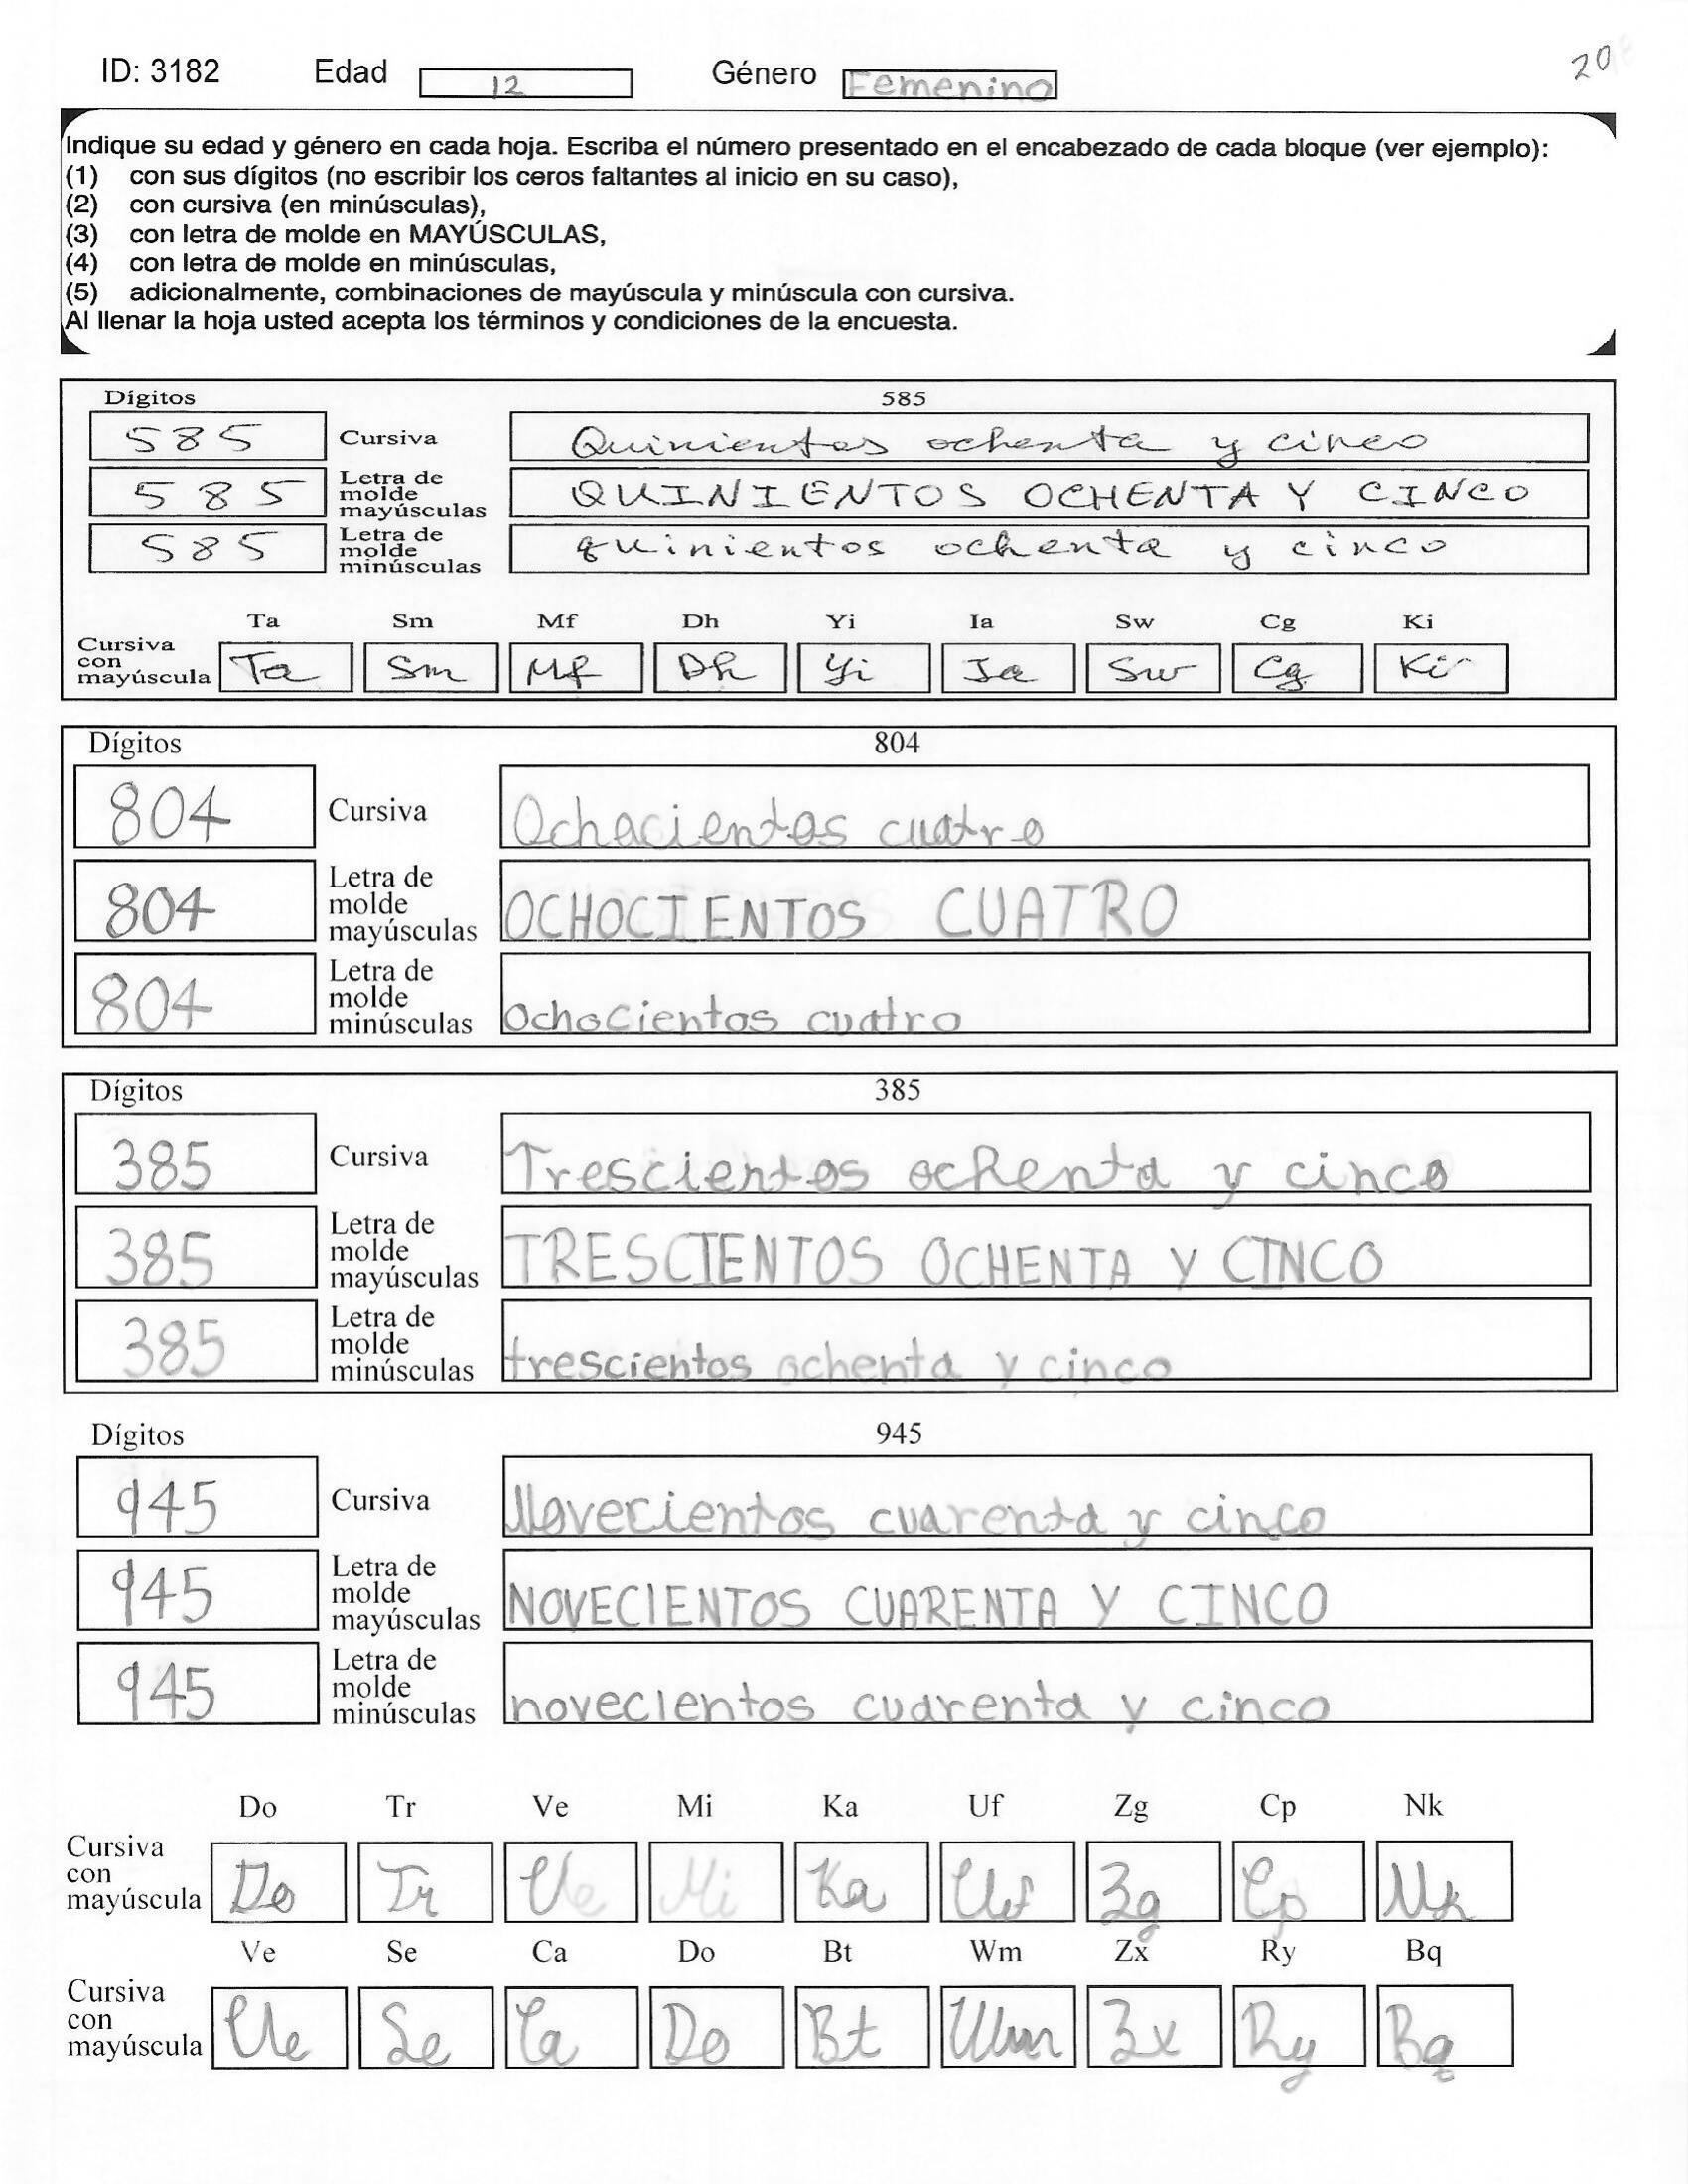 ID: 3182 Edad 12 Género Femenino 20
Indique su edad y género en cada hoja. Escriba el número presentado en el encabezado de cada bloque (ver ejemplo):
(1) con sus dígitos (no escribir los ceros faltantes al inicio en su caso),
(2) con cursiva (en minúsculas),
(3) con letra de molde en MAYÚSCULAS,
(4) con letra de molde en minúsculas,
(5) adicionalmente, combinaciones de mayúscula y minúscula con cursiva.
Al llenar la hoja usted acepta los términos y condiciones de la encuesta.
Dígitos 585
585 Cursiva Quinientos ochenta y cinco
585 Letra de molde mayúsculas QUINIENTOS OCHENTA Y CINCO
585 Letra de molde minúsculas quinientos ochenta y cinco
Ta Sm Mf Dh Yi Ia Sw Cg Ki
Cursiva con mayúscula Ta Sm Mf Dh Yi Ia Sw Cg Ki
Dígitos 804
804 Cursiva Ochacientos cuatro
804 Letra de molde mayúsculas OCHOCIENTOS CUATRO
804 Letra de molde minúsculas Ochocientos cuatro
Dígitos 385
385 Cursiva Trescientos ochenta y cinco
385 Letra de molde mayúsculas TRESCIENTOS OCHENTA Y CINCO
385 Letra de molde minúsculas trescientos ochenta y cinco
Dígitos 945
945 Cursiva Novecientos cuarenta y cinco
945 Letra de molde mayúsculas NOVECIENTOS CUARENTA Y CINCO
945 Letra de molde minúsculas novecientos cuarenta y cinco
Do Tr Ve Mi Ka Uf Zg Cp Nk
Cursiva con mayúscula Do Tr Ve Mi Ka Uf Zg Cp Nk
Ve Se Ca Do Bt Wm Zx Ry Bq
Cursiva con mayúscula Ve Se Ca Do Bt Wm Zx Ry Bq